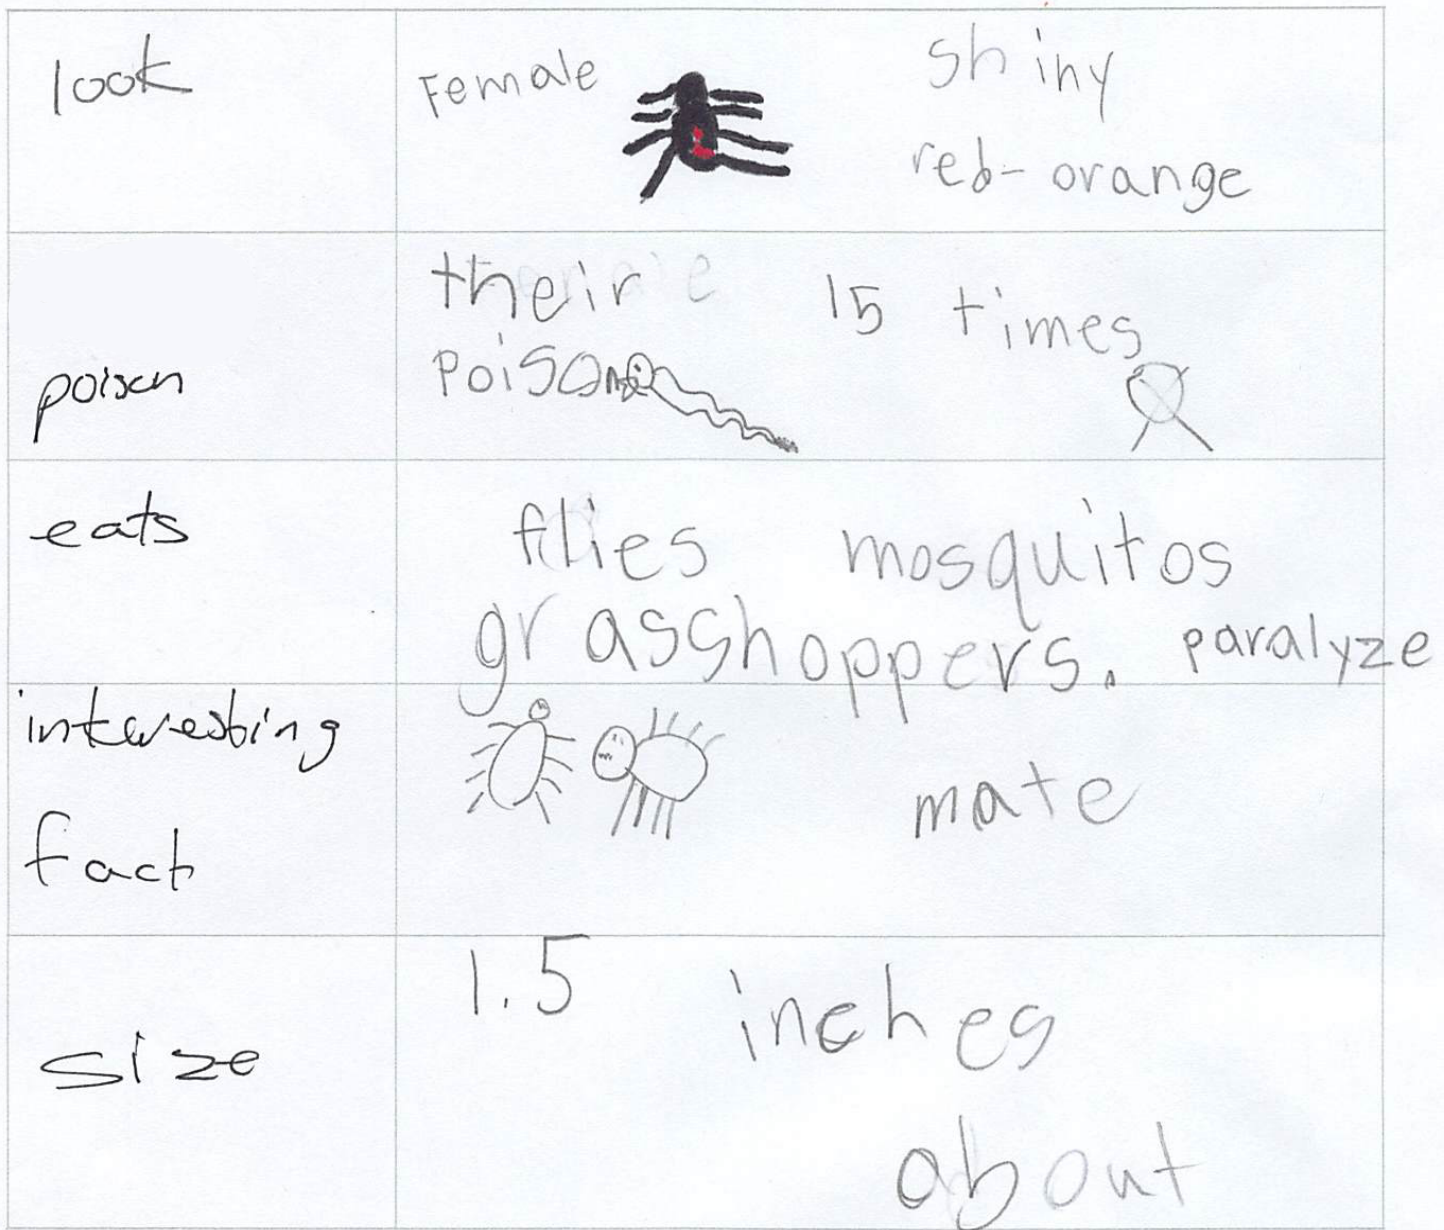 look
Female
shiny
red-orange
poison
their
15 times
poison
eats
flies mosquitos
grasshoppers. paralyze
interesting
fact
mate
size
1.5 inches
about